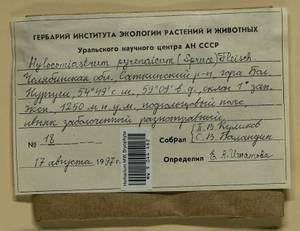 ГЕРБАРИЙ ИНСТИТУТА ЭКОЛОГИИ РАСТЕНИЙ И ЖИВОТНЫХ
Уральского научного центра АН СССР
Hylocomiastrum pyrenaicum (Spruce) Fleisch.
Челябинская обл. Саткинский р-н, гора Бол.
Нургуш, 54°49' с.ш., 59°09' в.д., склон 1° зап.
эксп. 1250 м н.у.м., подгольцовый пояс
ивняк заболоченный разнотравный
П.В. Куликов
№ 18 Собрал С.В. Баландин
17 августа 1997 г. Определил Е.А. Игнатова